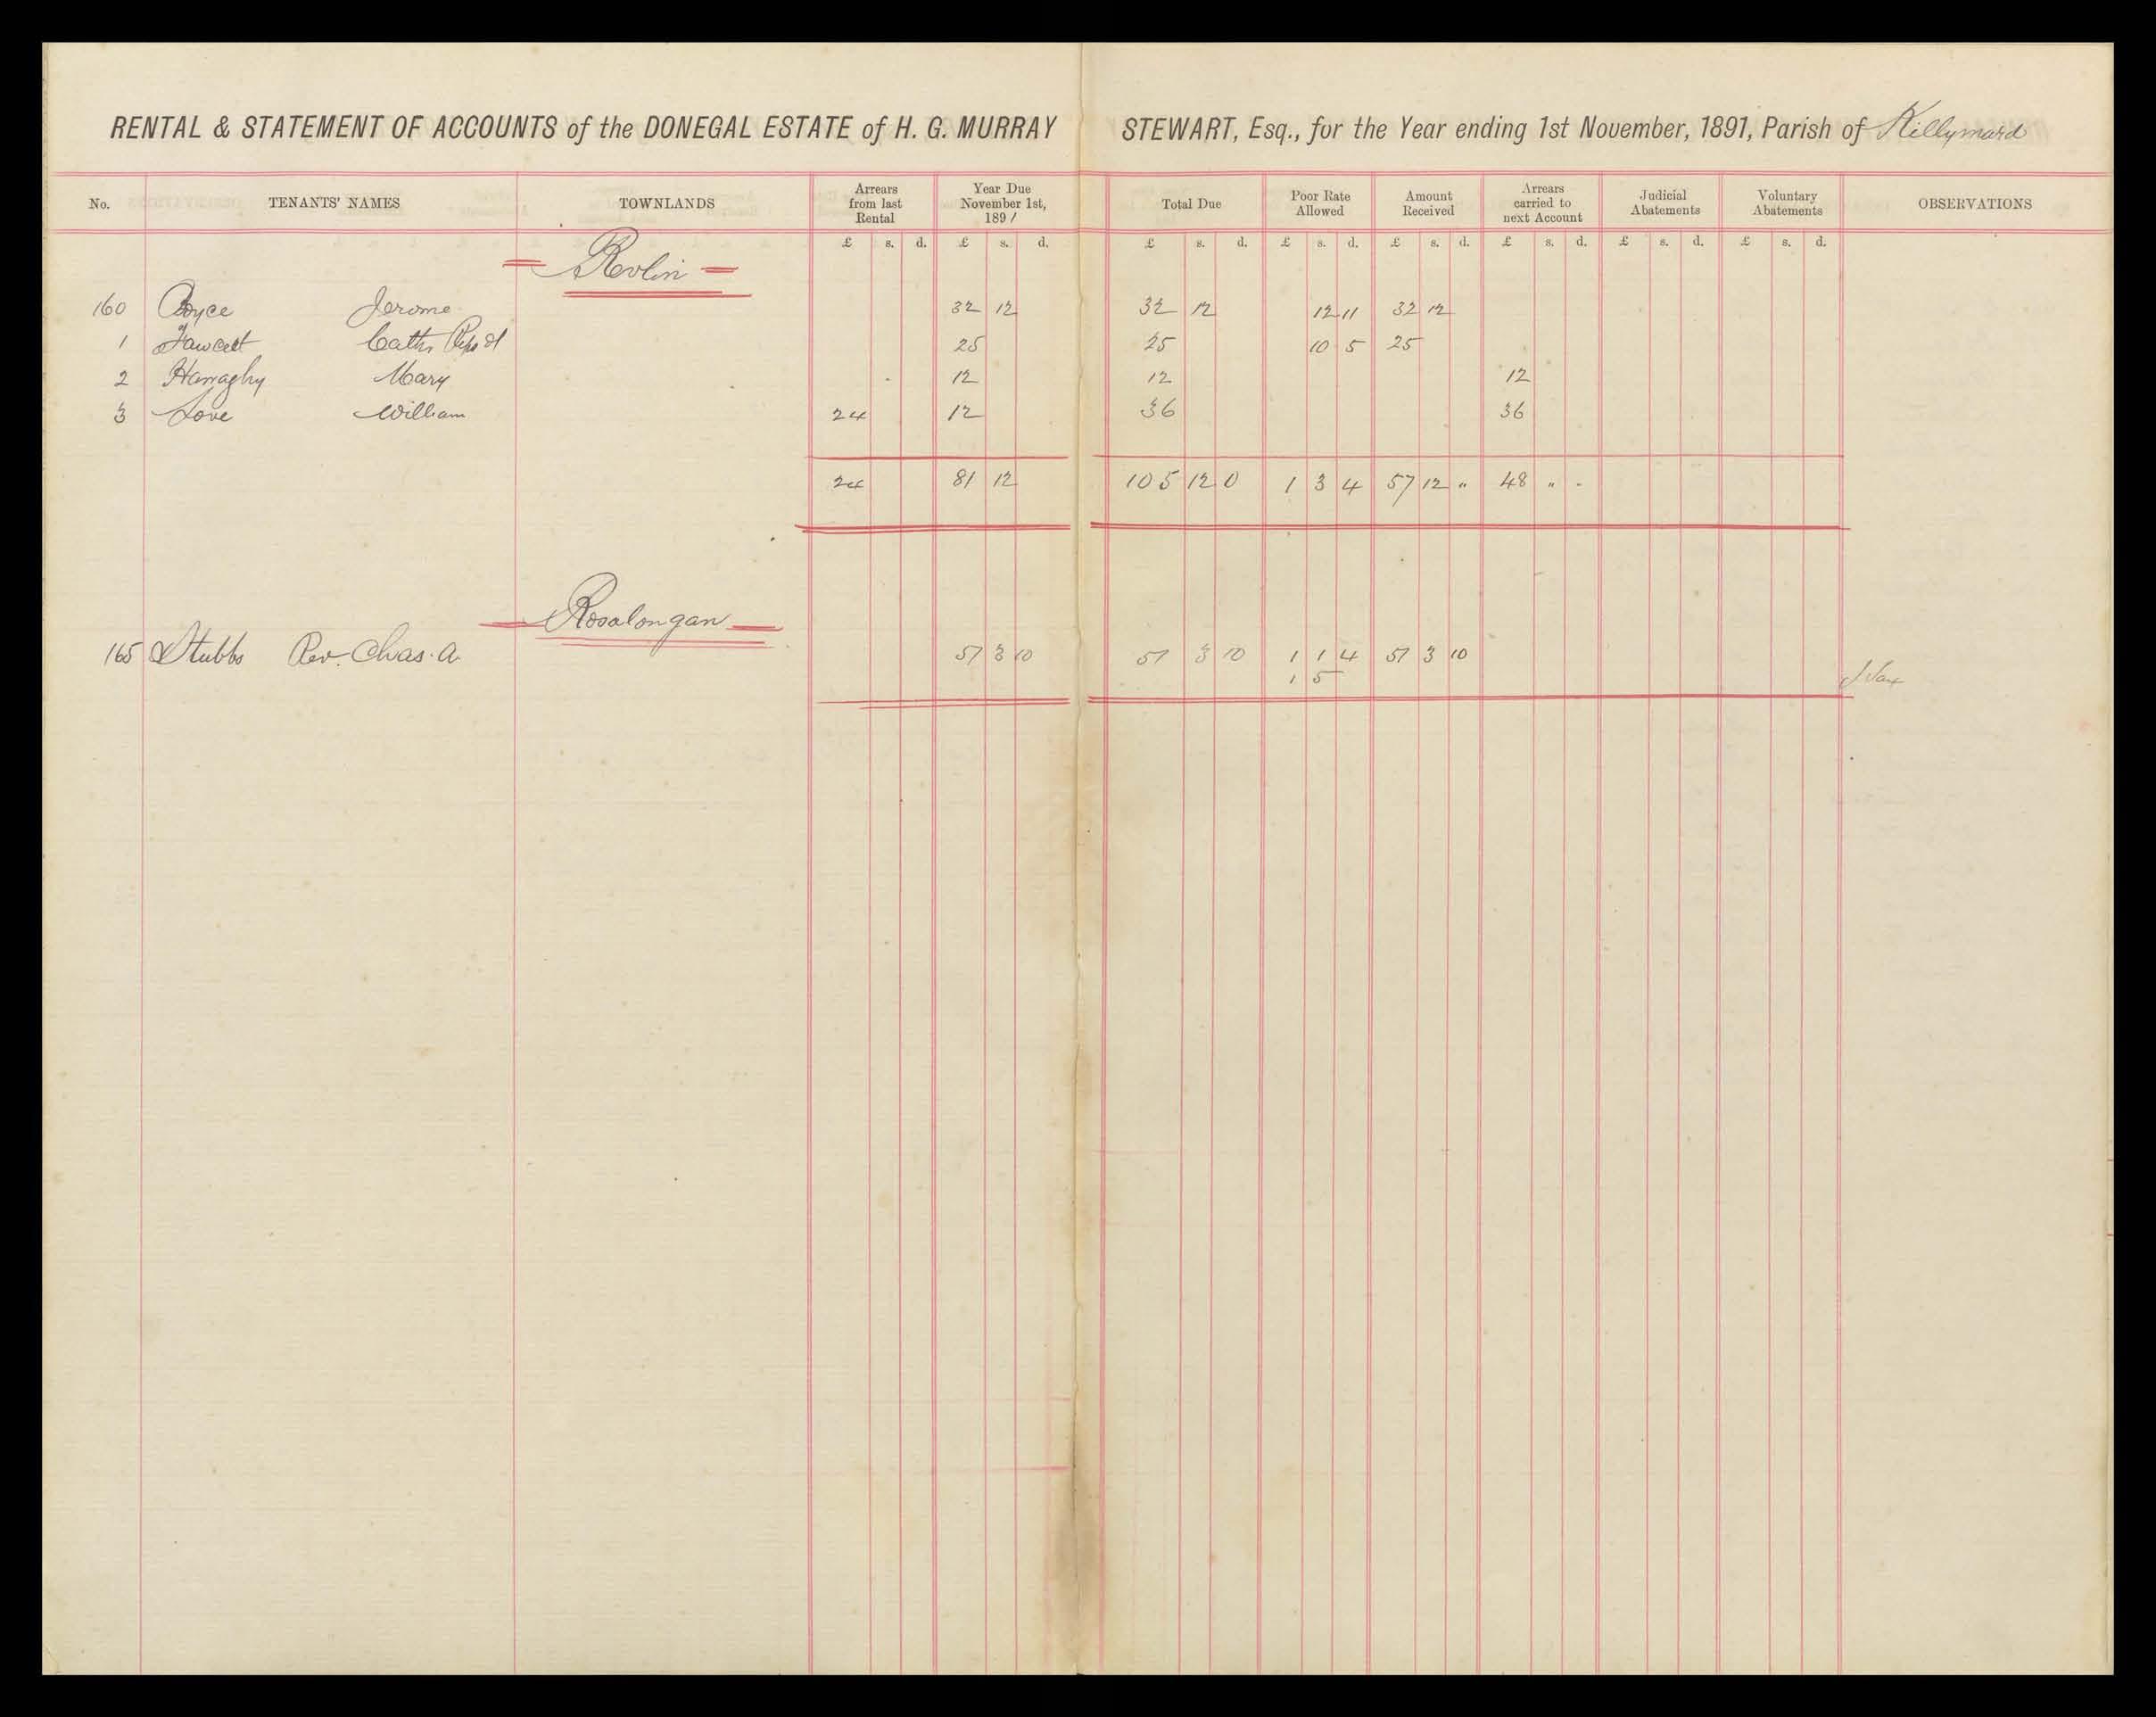 RENTAL & STATEMENT OF ACCOUNTS of the DONEGAL ESTATE of H. G. MURRAY STEWART, Esq., for the Year ending 1st November, 1891, Parish of Killymard
No. TENANTS' NAMES TOWNLANDS Arrears from last Rental Year Due November 1st, 1891 Total Due Poor Rate Allowed Amount Received Arrears carried to next Account Judicial Abatements Voluntary Abatements OBSERVATIONS
£ s. d. £ s. d. £ s. d. £ s. d. £ s. d. £ s. d. £ s. d. £ s. d.
Revlin
160 Boyce Jerome 32 12 32 12 12 11 32 12
1 Fawcett Cath. Reps of 25 25 10 5 25
2 Harraghy Mary 12 12 12
3 Love William 24 12 36 36
24 81 12 105 12 0 1 3 4 57 12 " 48 " "
Rosalongan
165 Stubbs Rev. Chas. A. 57 3 10 57 3 10 1 1 4 57 3 10
1 5